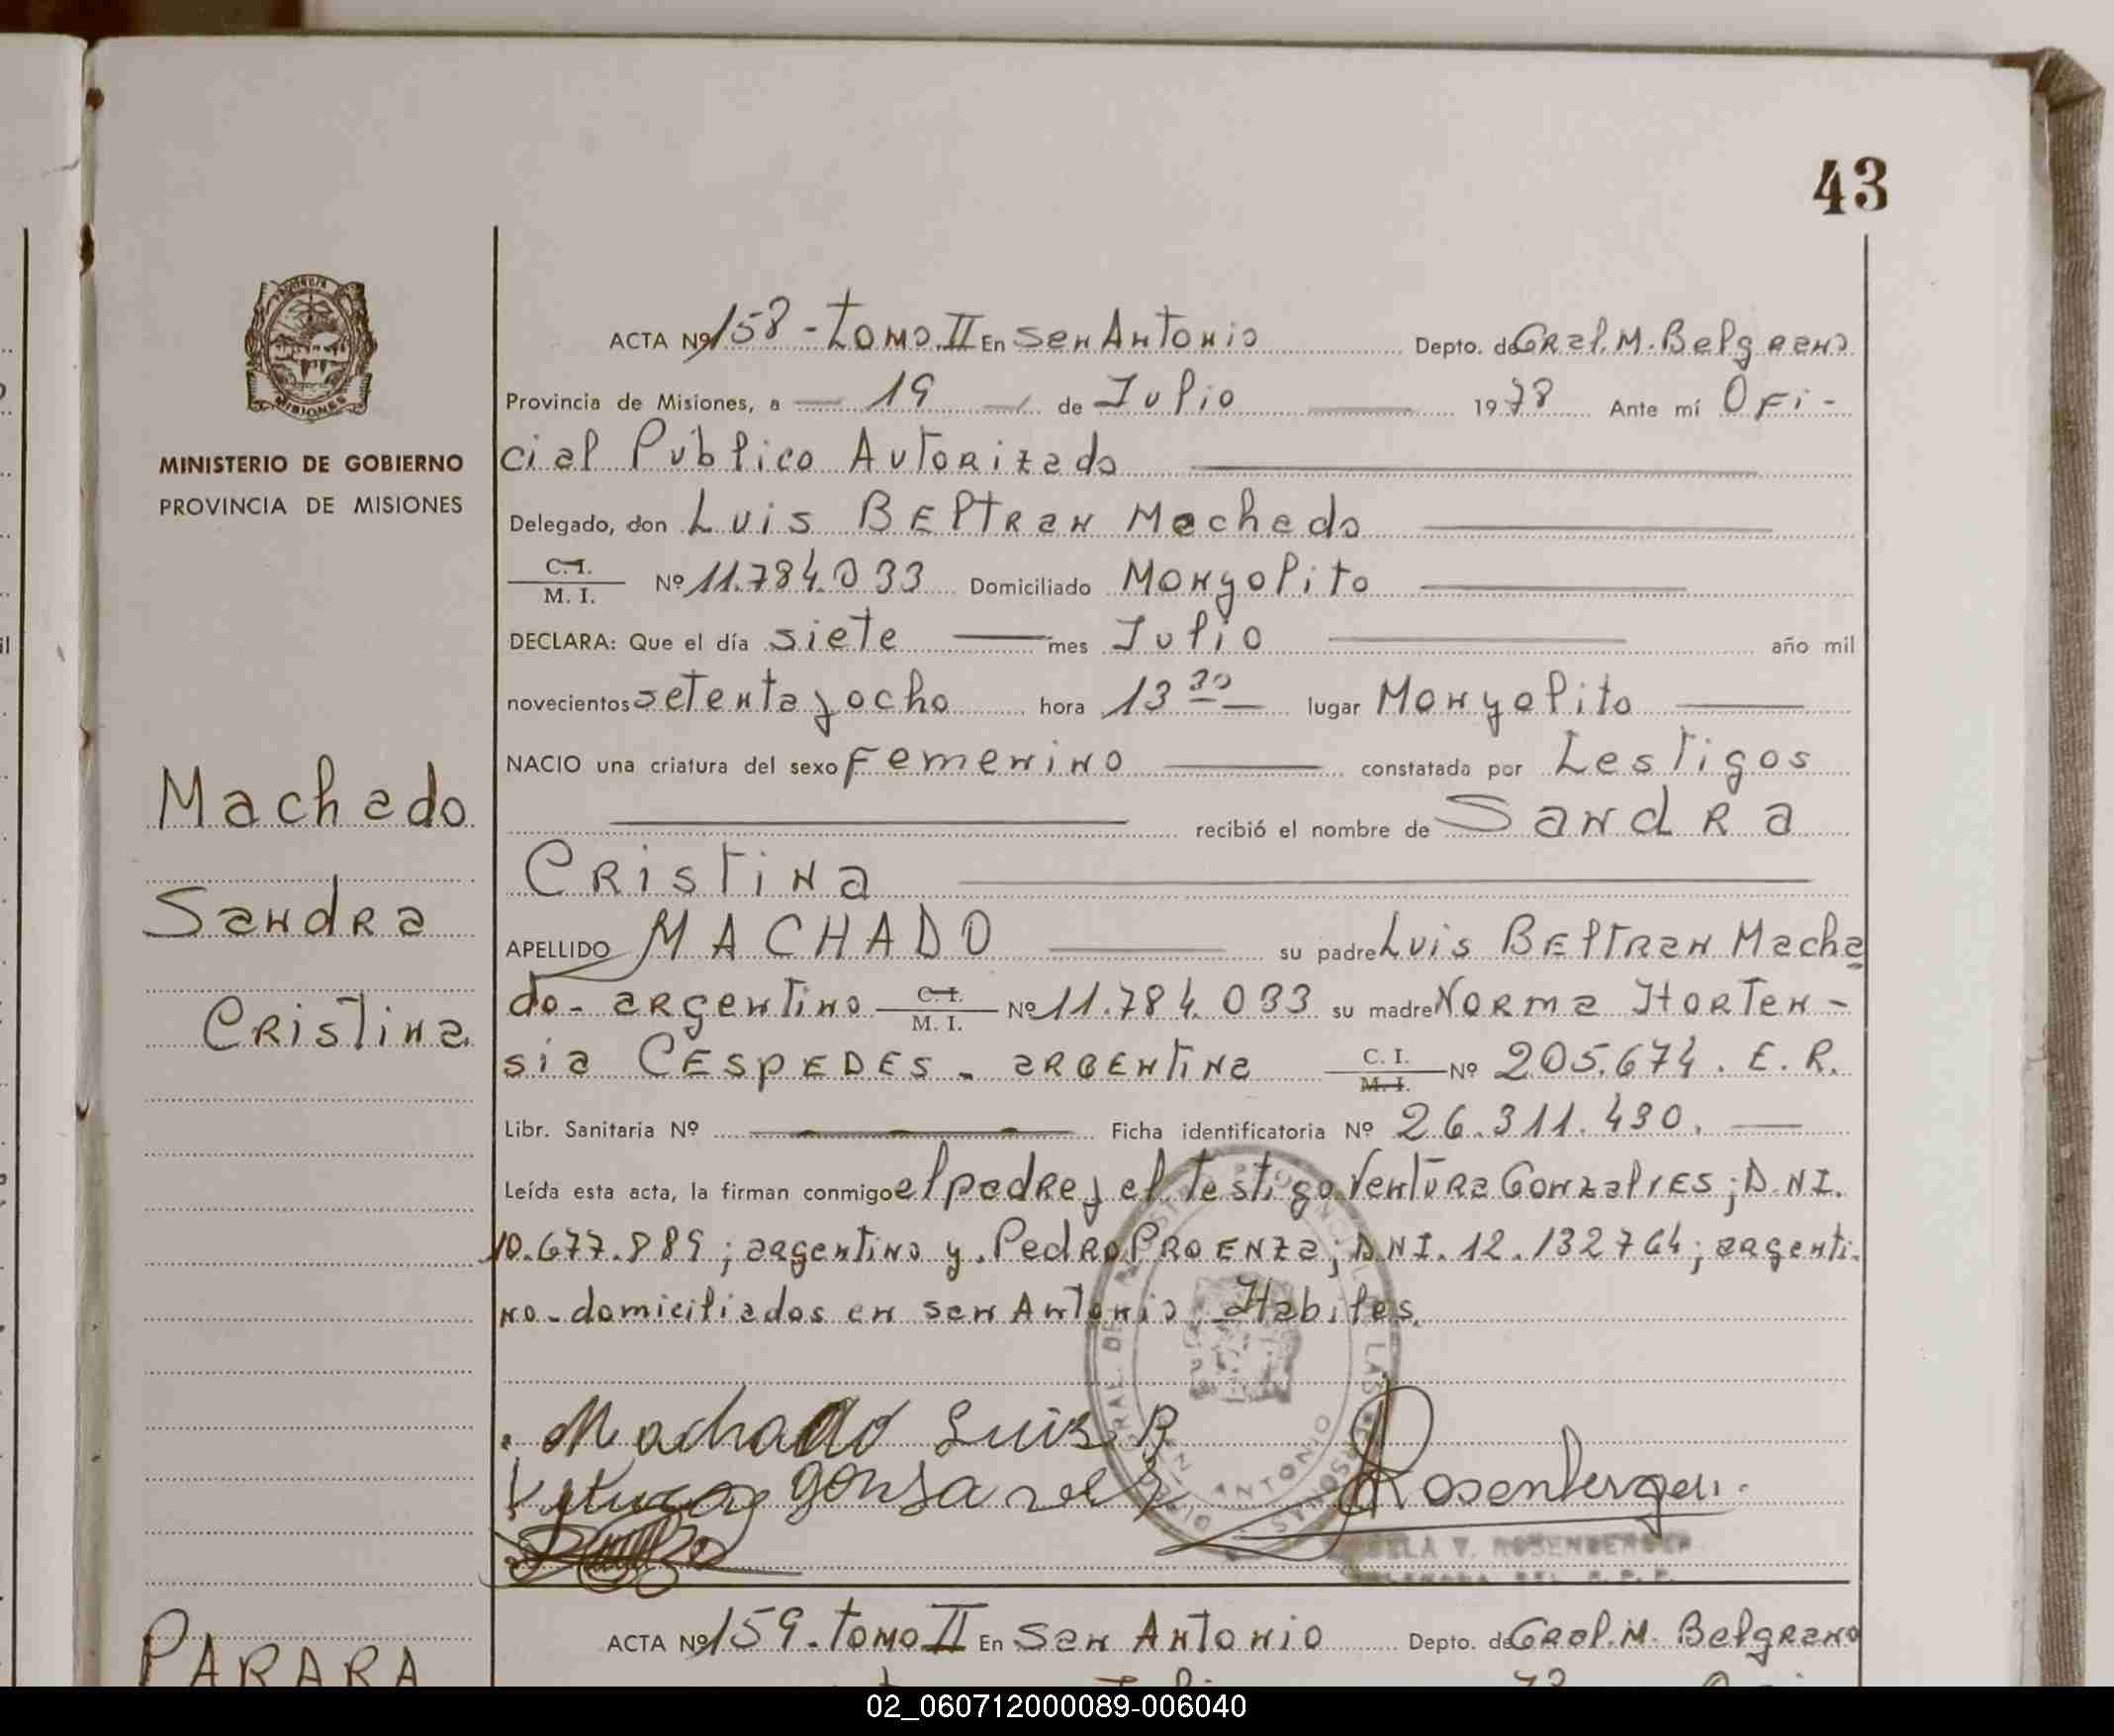 43
ACTA Nº 158 - Tomo II En San Antonio Depto. de Gral. M. Belgrano
Provincia de Misiones, a 19 de Julio 1978 Ante mí Ofi-
cial Publico Autorizado
MINISTERIO DE GOBIERNO
PROVINCIA DE MISIONES
Delegado, don Luis BELTRAN Machado
C.I.
M. I. Nº 11.784.033 Domiciliado Mongolito
DECLARA: Que el día siete mes Julio año mil
novecientos setenta y ocho hora 13 30 lugar Mongolito
NACIO una criatura del sexo Femenino constatada por Testigos
recibió el nombre de Sandra
Cristina
Machado
Sandra
Cristina
APELLIDO MACHADO su padre Luis BELTRAN Macha
do - argentino C.I.
M. I. Nº 11.784.033 su madre Norma Horten-
sia CESPEDES - ARGENTINA C. I.
M. I. Nº 205.674. E. R.
Libr. Sanitaria Nº Ficha identificatoria Nº 26.311.430.
Leída esta acta, la firman conmigo el padre y el testigo Ventura Gonzalves; D.N.I.
10.677.889; argentino y Pedro PROENZA; D.N.I. 12.132764; argenti-
no - domiciliados en San Antonio. Habiles.
Machado Luis B
gonsa
Rosenberger
SAN ANTONIO
V. ROSENBERGER
ACTA Nº 159 - Tomo II En San Antonio Depto. de Gral. M. Belgrano
PARARA
02_060712000089-006040